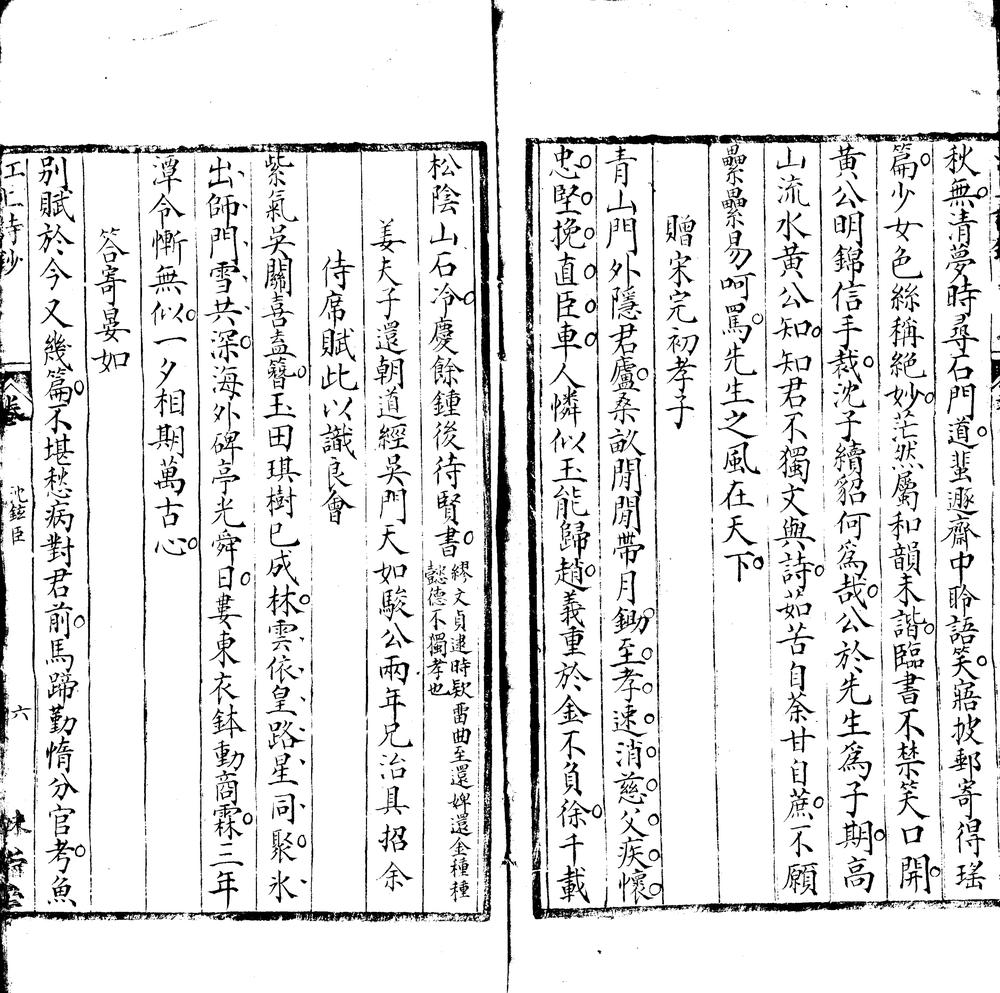 秋無清夢時尋石門道蜚遯齋中聆語笑寤披郵寄得瑤
篇少女色絲稱絕妙茫然屬和韻未諧臨書不禁笑口開
黃公明錦信手裁沈子續貂何爲哉公於先生爲子期高
山流水黃公知知君不獨文與詩茹苦自荼甘自蔗不願
纍纍易呵罵先生之風在天下
贈宋完初孝子
青山門外隱君廬桑畝閒閒帶月鋤至孝速消慈父疾懷
忠堅挽直臣車人憐似玉能歸趙義重於金不負徐千載
松陰山石冷慶餘鍾後待賢書繆文貞逮時欵畱曲至還婢還金種種懿德不獨孝也
姜夫子還朝道經吳門天如駿公兩年兄治具招余
侍席賦此以識良會
紫氣吳關喜盍簪玉田琪樹已成林雲依皇路星同聚氷
出師門雪共深海外碑亭光舜日婁東衣鉢動商霖三年
潭令慚無似一夕相期萬古心
答寄晏如
別賦於今又幾篇不堪愁病對君前馬蹄勤惰分官考魚
卷
沈鉉臣
六